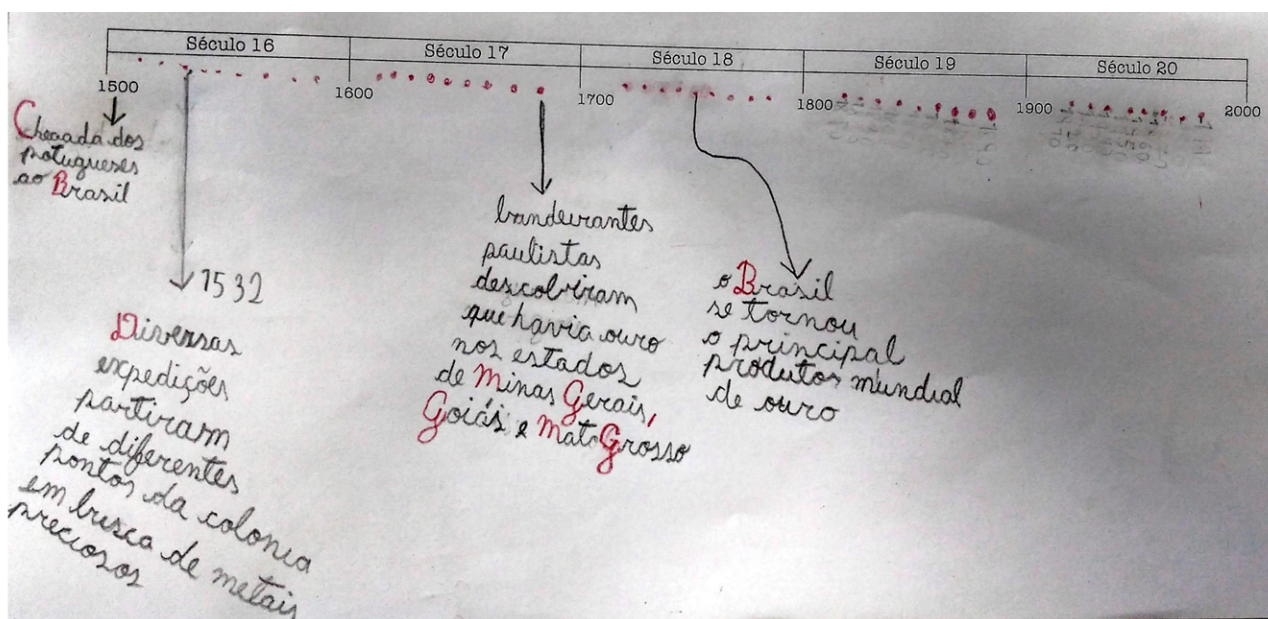 Século 16
Século 17
Século 18
Século 19
Século 20
1500
1600
1700
1800
1900
2000
Chegada dos
potugueses
ao Brasil
1532
Diversas
expedições
partiram
de diferentes
pontos da colonia
em busca de metais
preciosos
bandeirantes
paulistas
descobriram
que havia ouro
nos estados
de Minas Gerais,
Goiás e Mato Grosso
o Brasil
se tornou
o principal
produtos mundial
de ouro